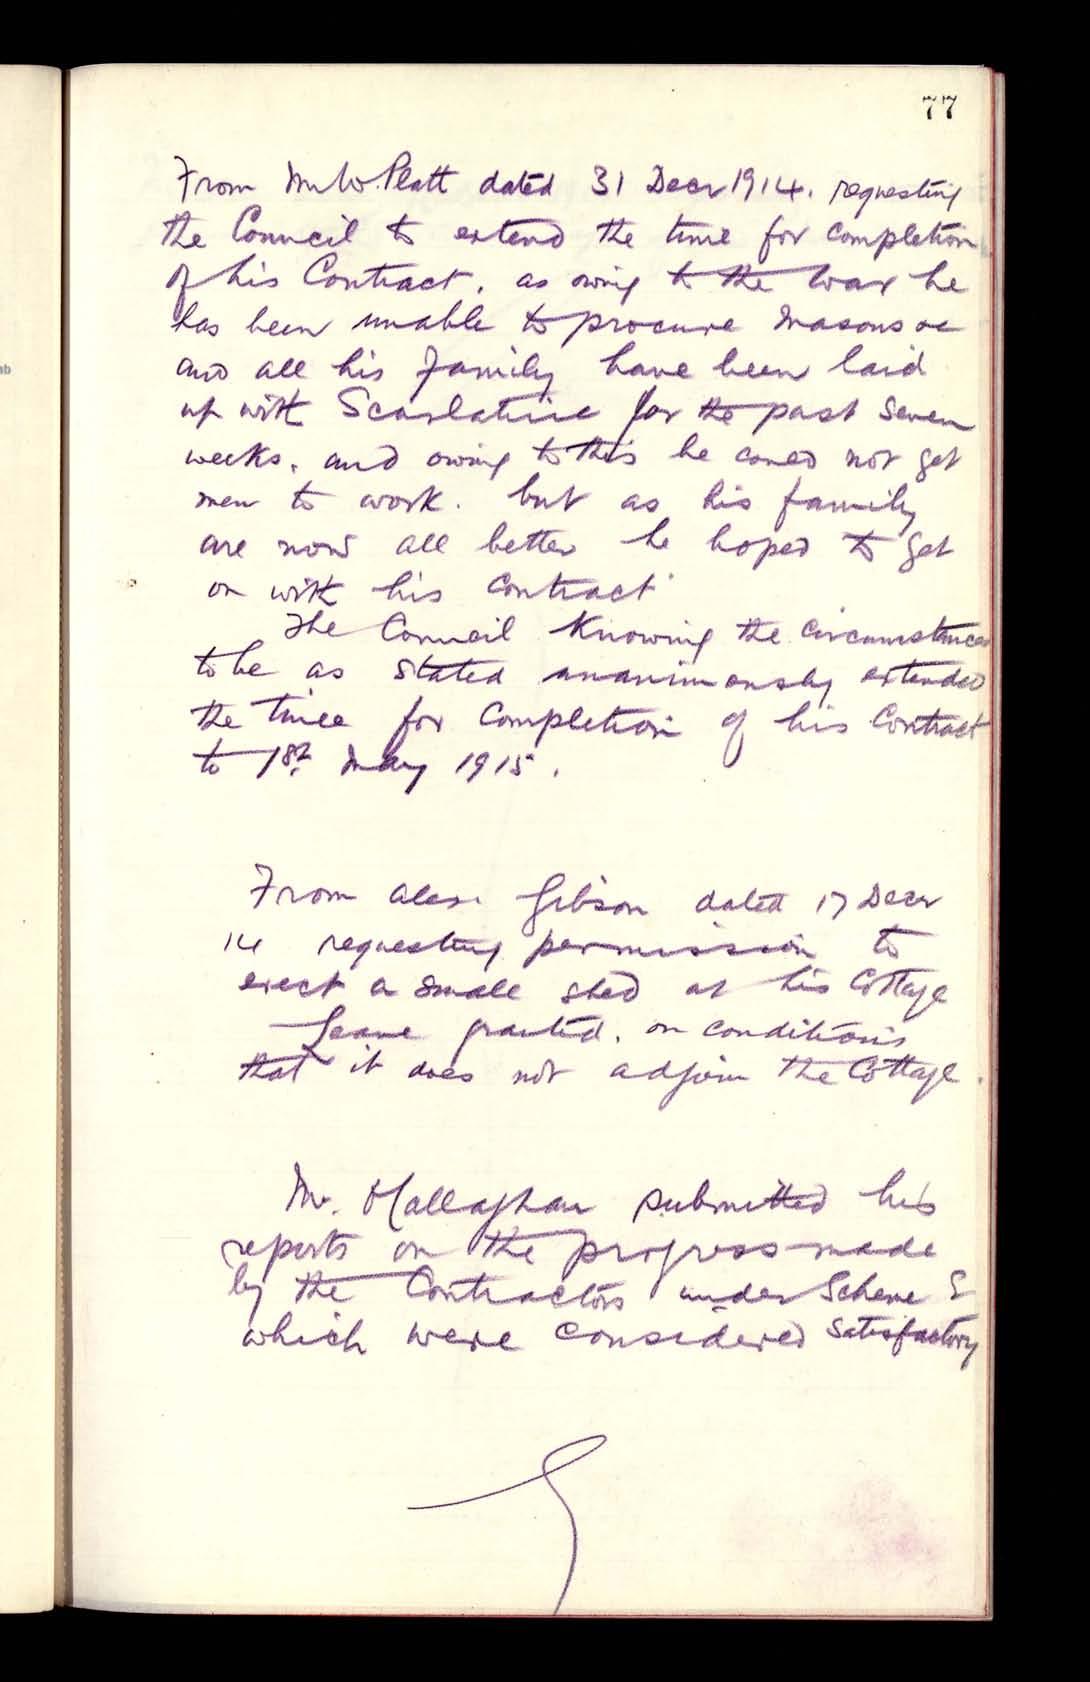 77
From Mr W. Platt dated 31 Decr 1914. requesting
the Council to extend the time for completion
of his Contract, as owing to the War he
has been unable to procure Masons &c
and all his family have been laid
up with Scarlatina for the past seven
weeks, and owing to this he could not get
men to work. but as his family
are now all better he hoped to get
on with his contract
The Council Knowing the circumstances
to be as stated unanimously extended
the time for Completion of his Contract
to 1st May 1915.
From Alexr Gibson dated 17 Decr
14 requesting permission to
erect a small shed at his Cottage
Leave granted, on conditions
that it does not adjoin the Cottage.
Mr. O'Callaghan submitted his
reports on the progress made
by the Contractors under Scheme
which were considered satisfactory